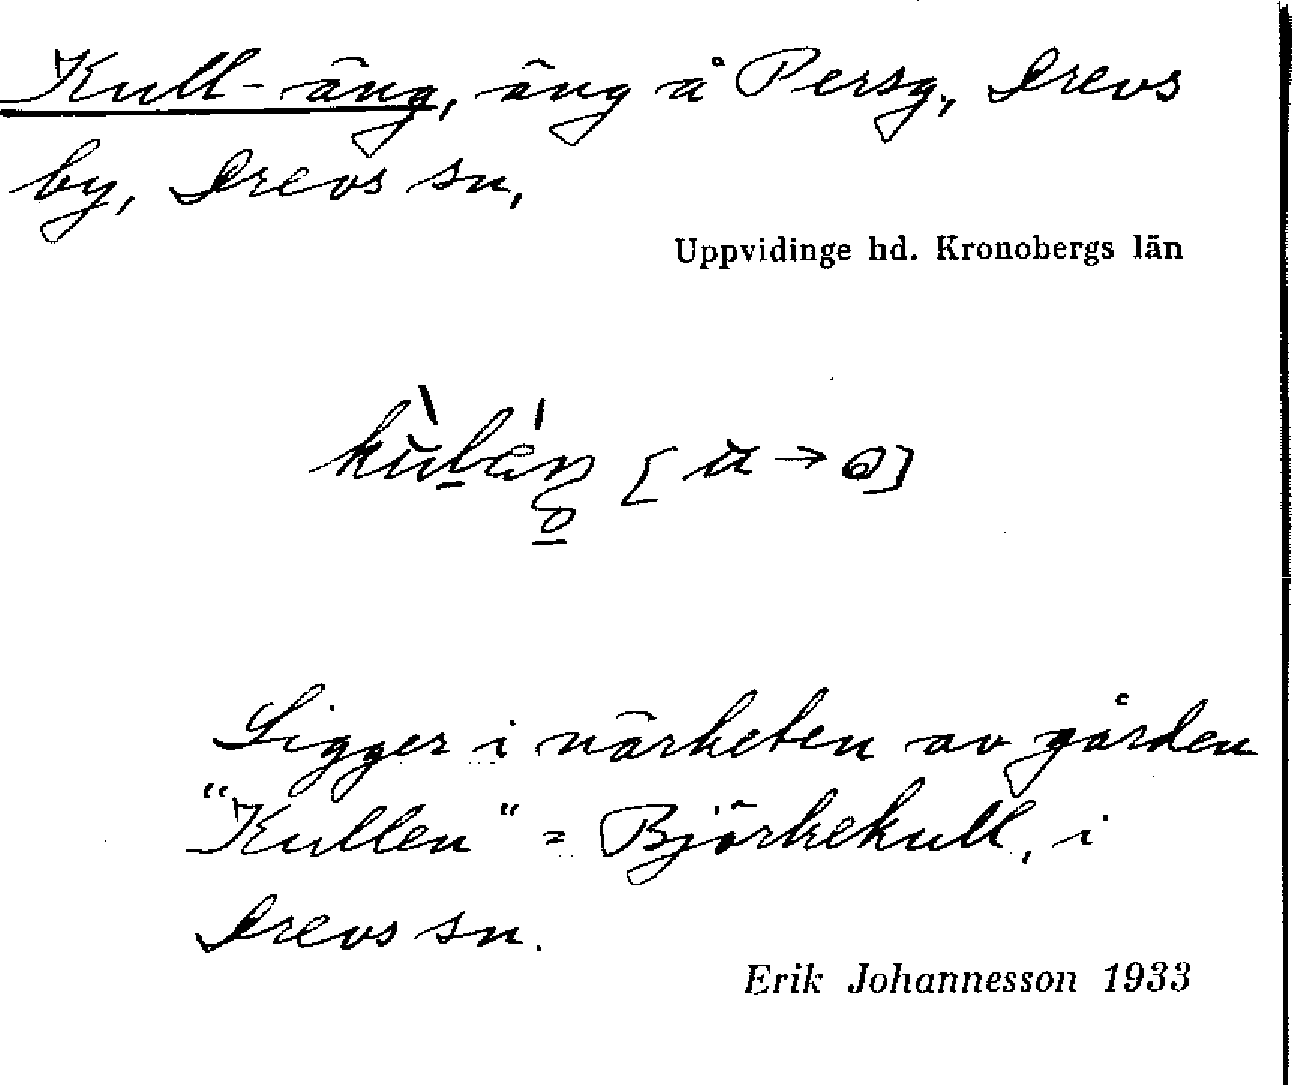 Kull-äng, äng å Persg., Drevs
by, Drevs sn,
Uppvidinge hd. Kronobergs län
Ligger i närheten av gården
"Kullen" = Björkekull, i
Drevs sn.
Erik Johannesson 1933